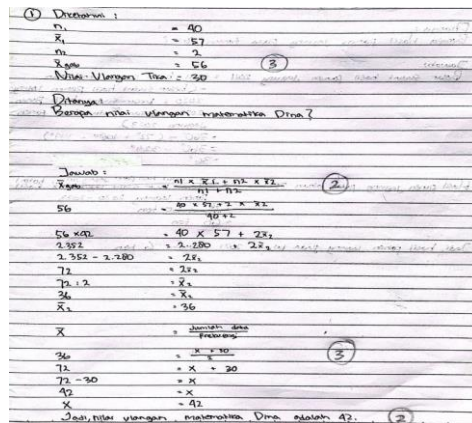 ① Diketahui :
n₁ = 40
x̄₁ = 57
n₂ = 2
x̄ gab = 56 ③
Nilai Ulangan Tika = 30
Ditanya :
Berapa nilai ulangan matematika Dina ?
Jawab :
x̄ gab = n1 × x̄1 + n2 × x̄2 / n1 + n2 ②
56 = 40 × 57 + 2 × x̄2 / 40 + 2
56 × 42 = 40 × 57 + 2x̄₂
2.352 = 2.280 + 2x̄₂
2.352 - 2.280 = 2x̄₂
72 = 2x̄₂
72 : 2 = x̄₂
36 = x̄₂
x̄₂ = 36
x̄ = Jumlah data / Frekuensi
36 = x + 30 / 2 ③
72 = x + 30
72 - 30 = x
42 = x
x = 42
Jadi, nilai ulangan matematika Dina adalah 42. ②